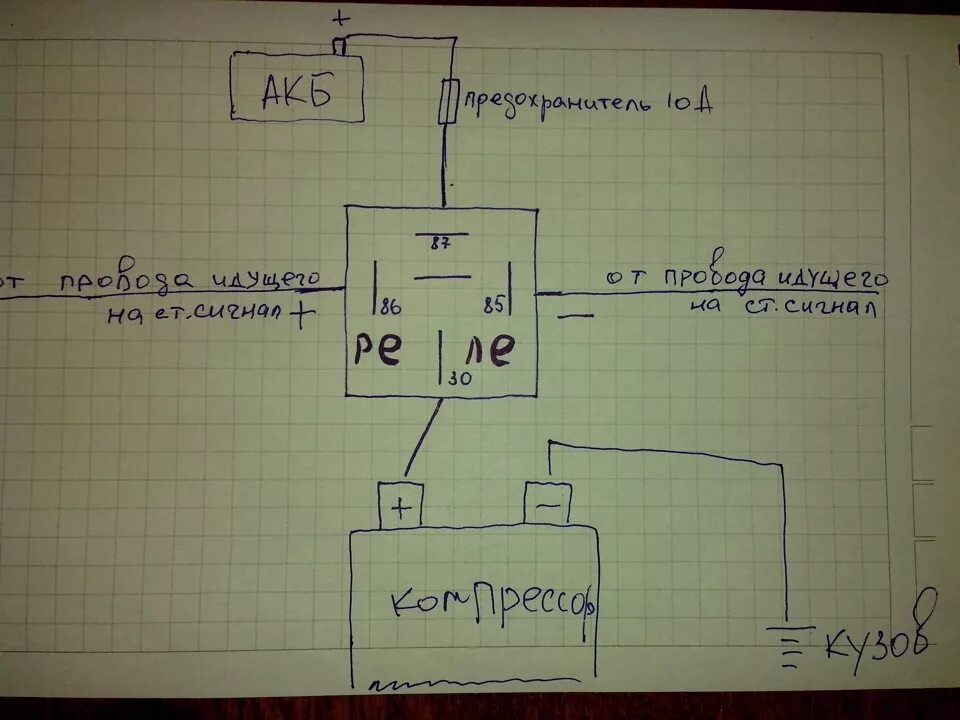 +
АКБ
предохранитель 10А
87
от провода идущего
на ст.сигнал +
86
85
от провода идущего
на ст.сигнал
—
ре ле
30
+
—
компрессор
кузов